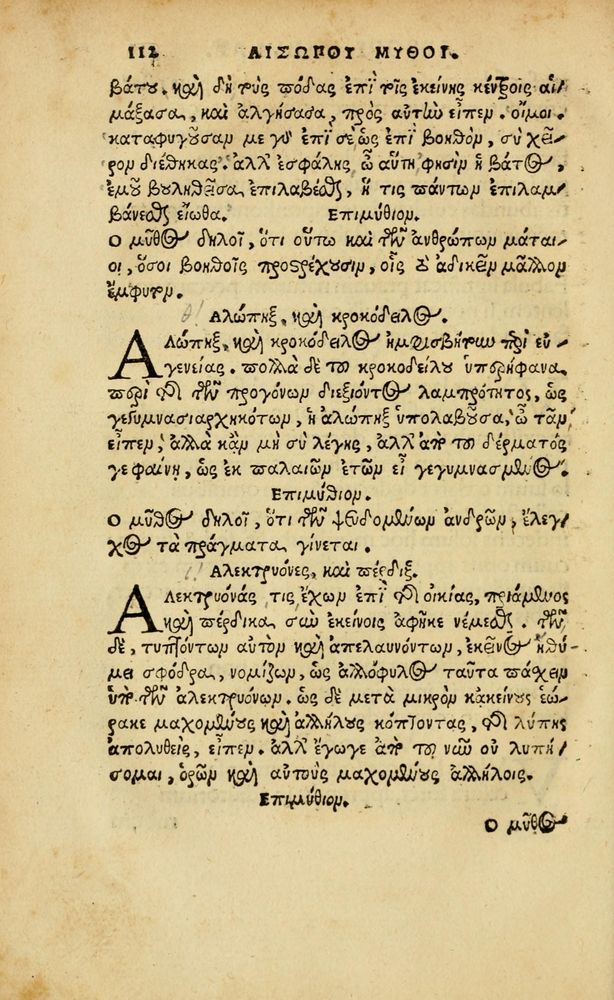 112 ΑΙΣΩΠΟΥ ΜΥΘΟΙ.
βάτου. καὶ δὴ τοὺς πόδας ἐπὶ τοῖς ἐκείνης κέντροις αἱ-
μάξασα, καὶ ἀλγήσασα, πρὸς αὐτὴν εἶπεν. οἴμοι.
καταφυγοῦσαν με γὰρ ἐπὶ σὲ ὡς ἐπὶ βοηθὸν, σὺ χεῖ-
ρον διέθηκας. ἀλλ' ἐσφάλης ὦ αὕτη φησὶν ἡ βάτος,
ἐμοῦ βουληθεῖσα ἐπιλαβέσθαι, ἥ τις πάντων ἐπιλαμ-
βάνεσθαι εἴωθα. Επιμύθιον.
Ο μῦθος δηλοῖ, ὅτι οὕτω καὶ τῶν ἀνθρώπων μάται-
οι, ὅσοι βοηθοῖς προστρέχουσιν, οἷς τὸ ἀδικεῖν μᾶλλον
ἔμφυτον.
Αλώπηξ, καὶ κροκόδειλος.
Αλώπηξ, καὶ κροκόδειλος ἠμφισβήτουν περὶ εὐ-
γενείας. πολλὰ δὲ τοῦ κροκοδείλου ὑπερήφανα
περὶ τῆς τῶν προγόνων διεξιόντος λαμπρότητος, ὡς
γεγυμνασιαρχηκότων, ἡ ἀλώπηξ ὑπολαβοῦσα, ὦ τᾶν,
εἶπεν, ἀλλὰ κἂν μὴ σὺ λέγῃς, ἀλλ' ἀπὸ τοῦ δέρματός
γε φαίνῃ, ὡς ἐκ παλαιῶν ἐτῶν εἶ γεγυμνασμένος.
Επιμύθιον.
Ο μῦθος δηλοῖ, ὅτι τῶν ψευδομένων ἀνδρῶν, ἔλεγ-
χος τὰ πράγματα γίνεται.
Αλεκτρυόνες, καὶ πέρδιξ.
Αλεκτρυόνάς τις ἔχων ἐπὶ τῆς οἰκίας, πριάμενος
καὶ πέρδικα, σὺν ἐκείνοις ἀφῆκε νέμεσθαι. τῶν
δὲ, τυπτόντων αὐτὸν καὶ ἀπελαυνόντων, ἐκεῖνος ἠθύ-
μει σφόδρα, νομίζων, ὡς ἀλλόφυλος ταῦτα πάσχειν
ὑπὸ τῶν ἀλεκτρυόνων. ὡς δὲ μετὰ μικρὸν κἀκείνους ἑώ-
ρακε μαχομένους καὶ ἀλλήλους κόπτοντας, τῆς λύπης
ἀπολυθεὶς, εἶπεν. ἀλλ' ἔγωγε ἀπὸ τοῦ νῦν οὐ λυπή-
σομαι, ὁρῶν καὶ αὐτοὺς μαχομένους ἀλλήλοις.
Επιμύθιον.
Ο μῦθος